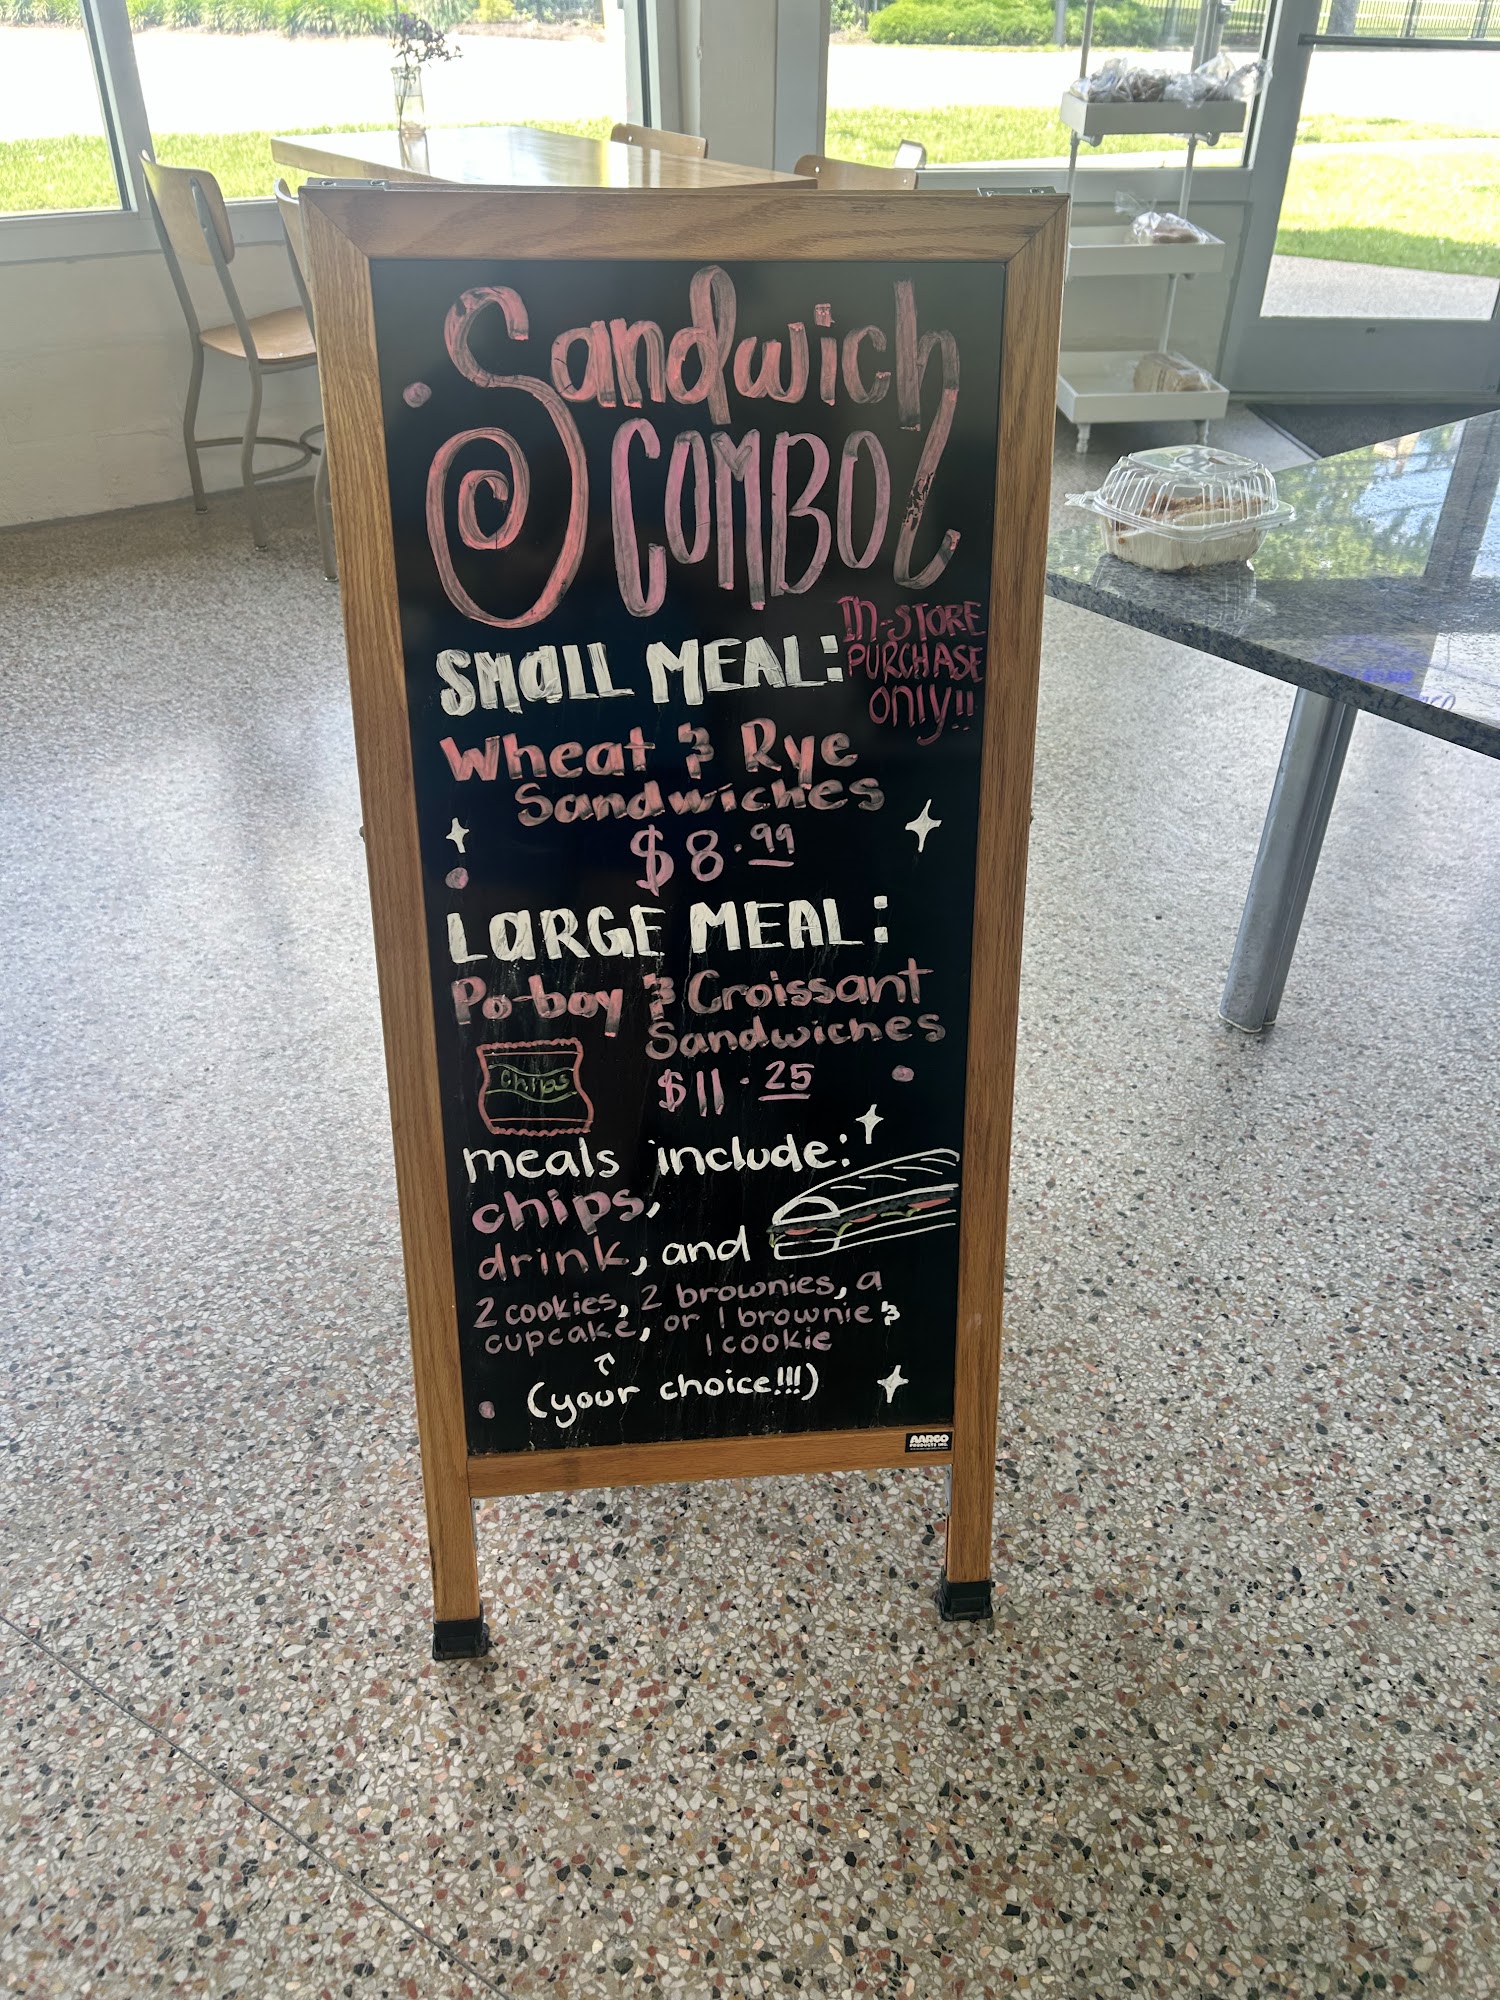 Sandwich
COMBO
SMALL MEAL:
IN-STORE
PURCHASE
ONLY!!
Wheat & Rye
Sandwiches
$8.99
LARGE MEAL:
Po-boy & Croissant
Sandwiches
$11.25
chips
meals include:
chips,
drink, and
2 cookies, 2 brownies, a
cupcake, or 1 brownie &
1 cookie
(your choice!!!)
AARCO
PRODUCTS INC.